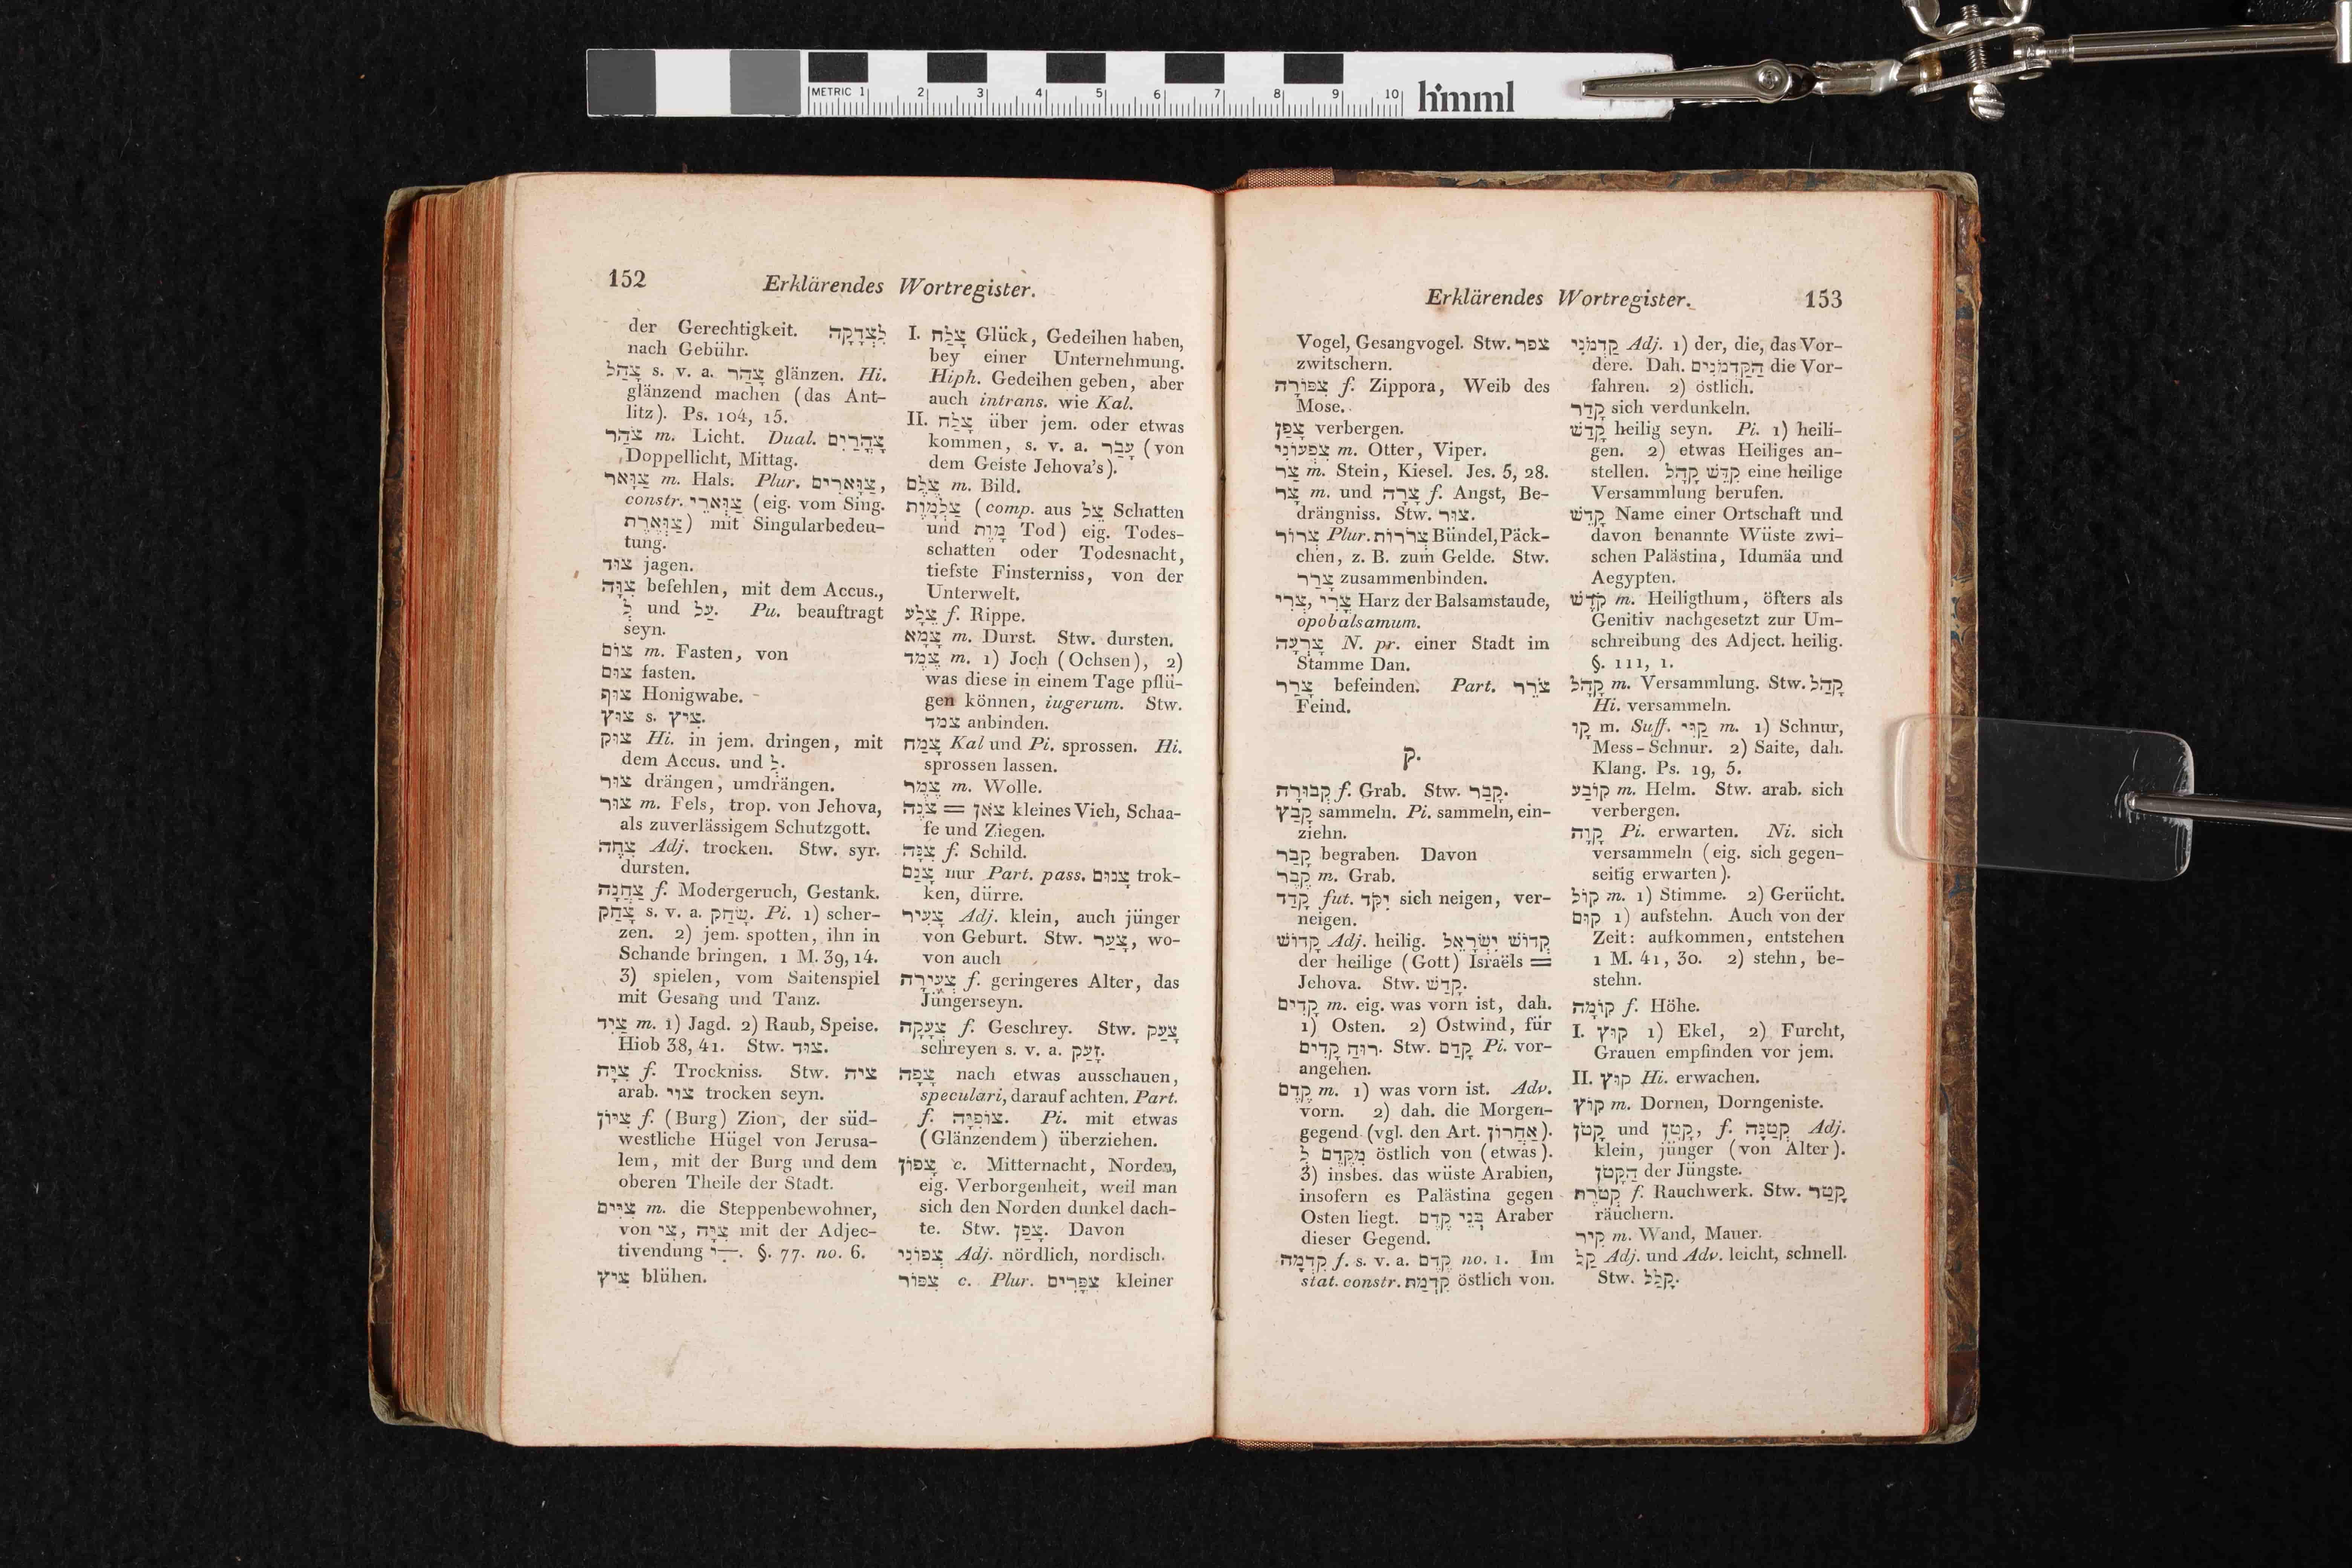 METRIC 1 2 3 4 5 6 7 8 9 10 hmml
152 Erklärendes Wortregister.
der Gerechtigkeit. לִצְדָקָה
nach Gebühr.
צָהַל s. v. a. צָהַר glänzen. Hi.
glänzend machen (das Ant-
litz). Ps. 104, 15.
צֹהַר m. Licht. Dual. צָהֳרַיִם
Doppellicht, Mittag.
צַוָּאר m. Hals. Plur. צַוָּארִים,
constr. צַוְּארֵי (eig. vom Sing.
צַוְּארֶת) mit Singularbedeu-
tung.
צוּד jagen.
צִוָּה befehlen, mit dem Accus.,
לְ und עַל. Pu. beauftragt
seyn.
צוֹם m. Fasten, von
צוּם fasten.
צוּף Honigwabe.
צוּץ s. צִיץ.
צוּק Hi. in jem. dringen, mit
dem Accus. und לְ.
צוּר drängen, umdrängen.
צוּר m. Fels, trop. von Jehova,
als zuverlässigem Schutzgott.
צִחֶה Adj. trocken. Stw. syr.
dursten.
צַחֲנָה f. Modergeruch, Gestank.
צָחַק s. v. a. שָׂחַק. Pi. 1) scher-
zen. 2) jem. spotten, ihn in
Schande bringen. 1 M. 39, 14.
3) spielen, vom Saitenspiel
mit Gesang und Tanz.
צַיִד m. 1) Jagd. 2) Raub, Speise.
Hiob 38, 41. Stw. צוּד.
צִיָּה f. Trockniss. Stw. ציה
arab. צוי trocken seyn.
צִיּוֹן f. (Burg) Zion, der süd-
westliche Hügel von Jerusa-
lem, mit der Burg und dem
oberen Theile der Stadt.
צִיִּים m. die Steppenbewohner,
von צִיָּה, צִי mit der Adjec-
tivendung ־ִי. §. 77. no. 6.
צִיץ blühen.
I. צָלַח Glück, Gedeihen haben,
bey einer Unternehmung.
Hiph. Gedeihen geben, aber
auch intrans. wie Kal.
II. צָלַח über jem. oder etwas
kommen, s. v. a. עָבַר (von
dem Geiste Jehova's).
צֶלֶם m. Bild.
צַלְמָוֶת (comp. aus צֵל Schatten
und מָוֶת Tod) eig. Todes-
schatten oder Todesnacht,
tiefste Finsterniss, von der
Unterwelt.
צֵלָע f. Rippe.
צָמָא m. Durst. Stw. dursten.
צֶמֶד m. 1) Joch (Ochsen), 2)
was diese in einem Tage pflü-
gen können, iugerum. Stw.
צמד anbinden.
צָמַח Kal und Pi. sprossen. Hi.
sprossen lassen.
צֶמֶר m. Wolle.
צֹנֶה = צֹאן kleines Vieh, Schaa-
fe und Ziegen.
צִנָּה f. Schild.
צָנַם nur Part. pass. צָנוּם trok-
ken, dürre.
צָעִיר Adj. klein, auch jünger
von Geburt. Stw. צָעַר, wo-
von auch
צְעִירָה f. geringeres Alter, das
Jüngerseyn.
צְעָקָה f. Geschrey. Stw. צָעַק
schreyen s. v. a. זָעַק.
צָפָה nach etwas ausschauen,
speculari, darauf achten. Part.
f. צוֹפִיָּה. Pi. mit etwas
(Glänzendem) überziehen.
צָפוֹן c. Mitternacht, Norden,
eig. Verborgenheit, weil man
sich den Norden dunkel dach-
te. Stw. צָפַן. Davon
צְפוֹנִי Adj. nördlich, nordisch.
צִפּוֹר c. Plur. צִפֳּרִים kleiner
Erklärendes Wortregister. 153
Vogel, Gesangvogel. Stw. צפר
zwitschern.
צִפּוֹרָה f. Zippora, Weib des
Mose.
צָפַן verbergen.
צִפְעוֹנִי m. Otter, Viper.
צַר m. Stein, Kiesel. Jes. 5, 28.
צָר m. und צָרָה f. Angst, Be-
drängniss. Stw. צוּר.
צְרוֹר Plur. צְרֹרוֹת Bündel, Päck-
chen, z. B. zum Gelde. Stw.
צָרַר zusammenbinden.
צֳרִי, צְרִי Harz der Balsamstaude,
opobalsamum.
צָרְעָה N. pr. einer Stadt im
Stamme Dan.
צָרַר befeinden. Part. צֹרֵר
Feind.
ק.
קְבוּרָה f. Grab. Stw. קָבַר.
קָבַץ sammeln. Pi. sammeln, ein-
ziehn.
קָבַר begraben. Davon
קֶבֶר m. Grab.
קָדַד fut. יִקֹּד sich neigen, ver-
neigen.
קָדוֹשׁ Adj. heilig. קְדוֹשׁ יִשְׂרָאֵל
der heilige (Gott) Israëls =
Jehova. Stw. קָדַשׁ.
קָדִים m. eig. was vorn ist, dah.
1) Osten. 2) Ostwind, für
רוּחַ קָדִים. Stw. קָדַם Pi. vor-
angehen.
קֶדֶם m. 1) was vorn ist. Adv.
vorn. 2) dah. die Morgen-
gegend (vgl. den Art. אַחֲרוֹן).
מִקֶּדֶם לְ östlich von (etwas).
3) insbes. das wüste Arabien,
insofern es Palästina gegen
Osten liegt. בְּנֵי קֶדֶם Araber
dieser Gegend.
קִדְמָה f. s. v. a. קֶדֶם no. 1. Im
stat. constr. קִדְמַת östlich von.
קַדְמֹנִי Adj. 1) der, die, das Vor-
dere. Dah. הַקַּדְמֹנִים die Vor-
fahren. 2) östlich.
קָדַר sich verdunkeln.
קָדַשׁ heilig seyn. Pi. 1) heili-
gen. 2) etwas Heiliges an-
stellen. קִדֵּשׁ קָהָל eine heilige
Versammlung berufen.
קָדֵשׁ Name einer Ortschaft und
davon benannte Wüste zwi-
schen Palästina, Idumäa und
Aegypten.
קֹדֶשׁ m. Heiligthum, öfters als
Genitiv nachgesetzt zur Um-
schreibung des Adject. heilig.
§. 111, 1.
קָהָל m. Versammlung. Stw. קָהַל
Hi. versammeln.
קַו m. Suff. קַוִּי m. 1) Schnur,
Mess-Schnur. 2) Saite, dah.
Klang. Ps. 19, 5.
קוֹבַע m. Helm. Stw. arab. sich
verbergen.
קָוָה Pi. erwarten. Ni. sich
versammeln (eig. sich gegen-
seitig erwarten).
קוֹל m. 1) Stimme. 2) Gerücht.
קוּם 1) aufstehn. Auch von der
Zeit: aufkommen, entstehen
1 M. 41, 30. 2) stehn, be-
stehn.
קוֹמָה f. Höhe.
I. קוּץ 1) Ekel, 2) Furcht,
Grauen empfinden vor jem.
II. קוּץ Hi. erwachen.
קוֹץ m. Dornen, Dorngeniste.
קָטֹן und קָטָן, f. קְטַנָּה Adj.
klein, jünger (von Alter).
הַקָּטֹן der Jüngste.
קְטֹרֶת f. Rauchwerk. Stw. קָטַר
räuchern.
קִיר m. Wand, Mauer.
קַל Adj. und Adv. leicht, schnell.
Stw. קָלַל.